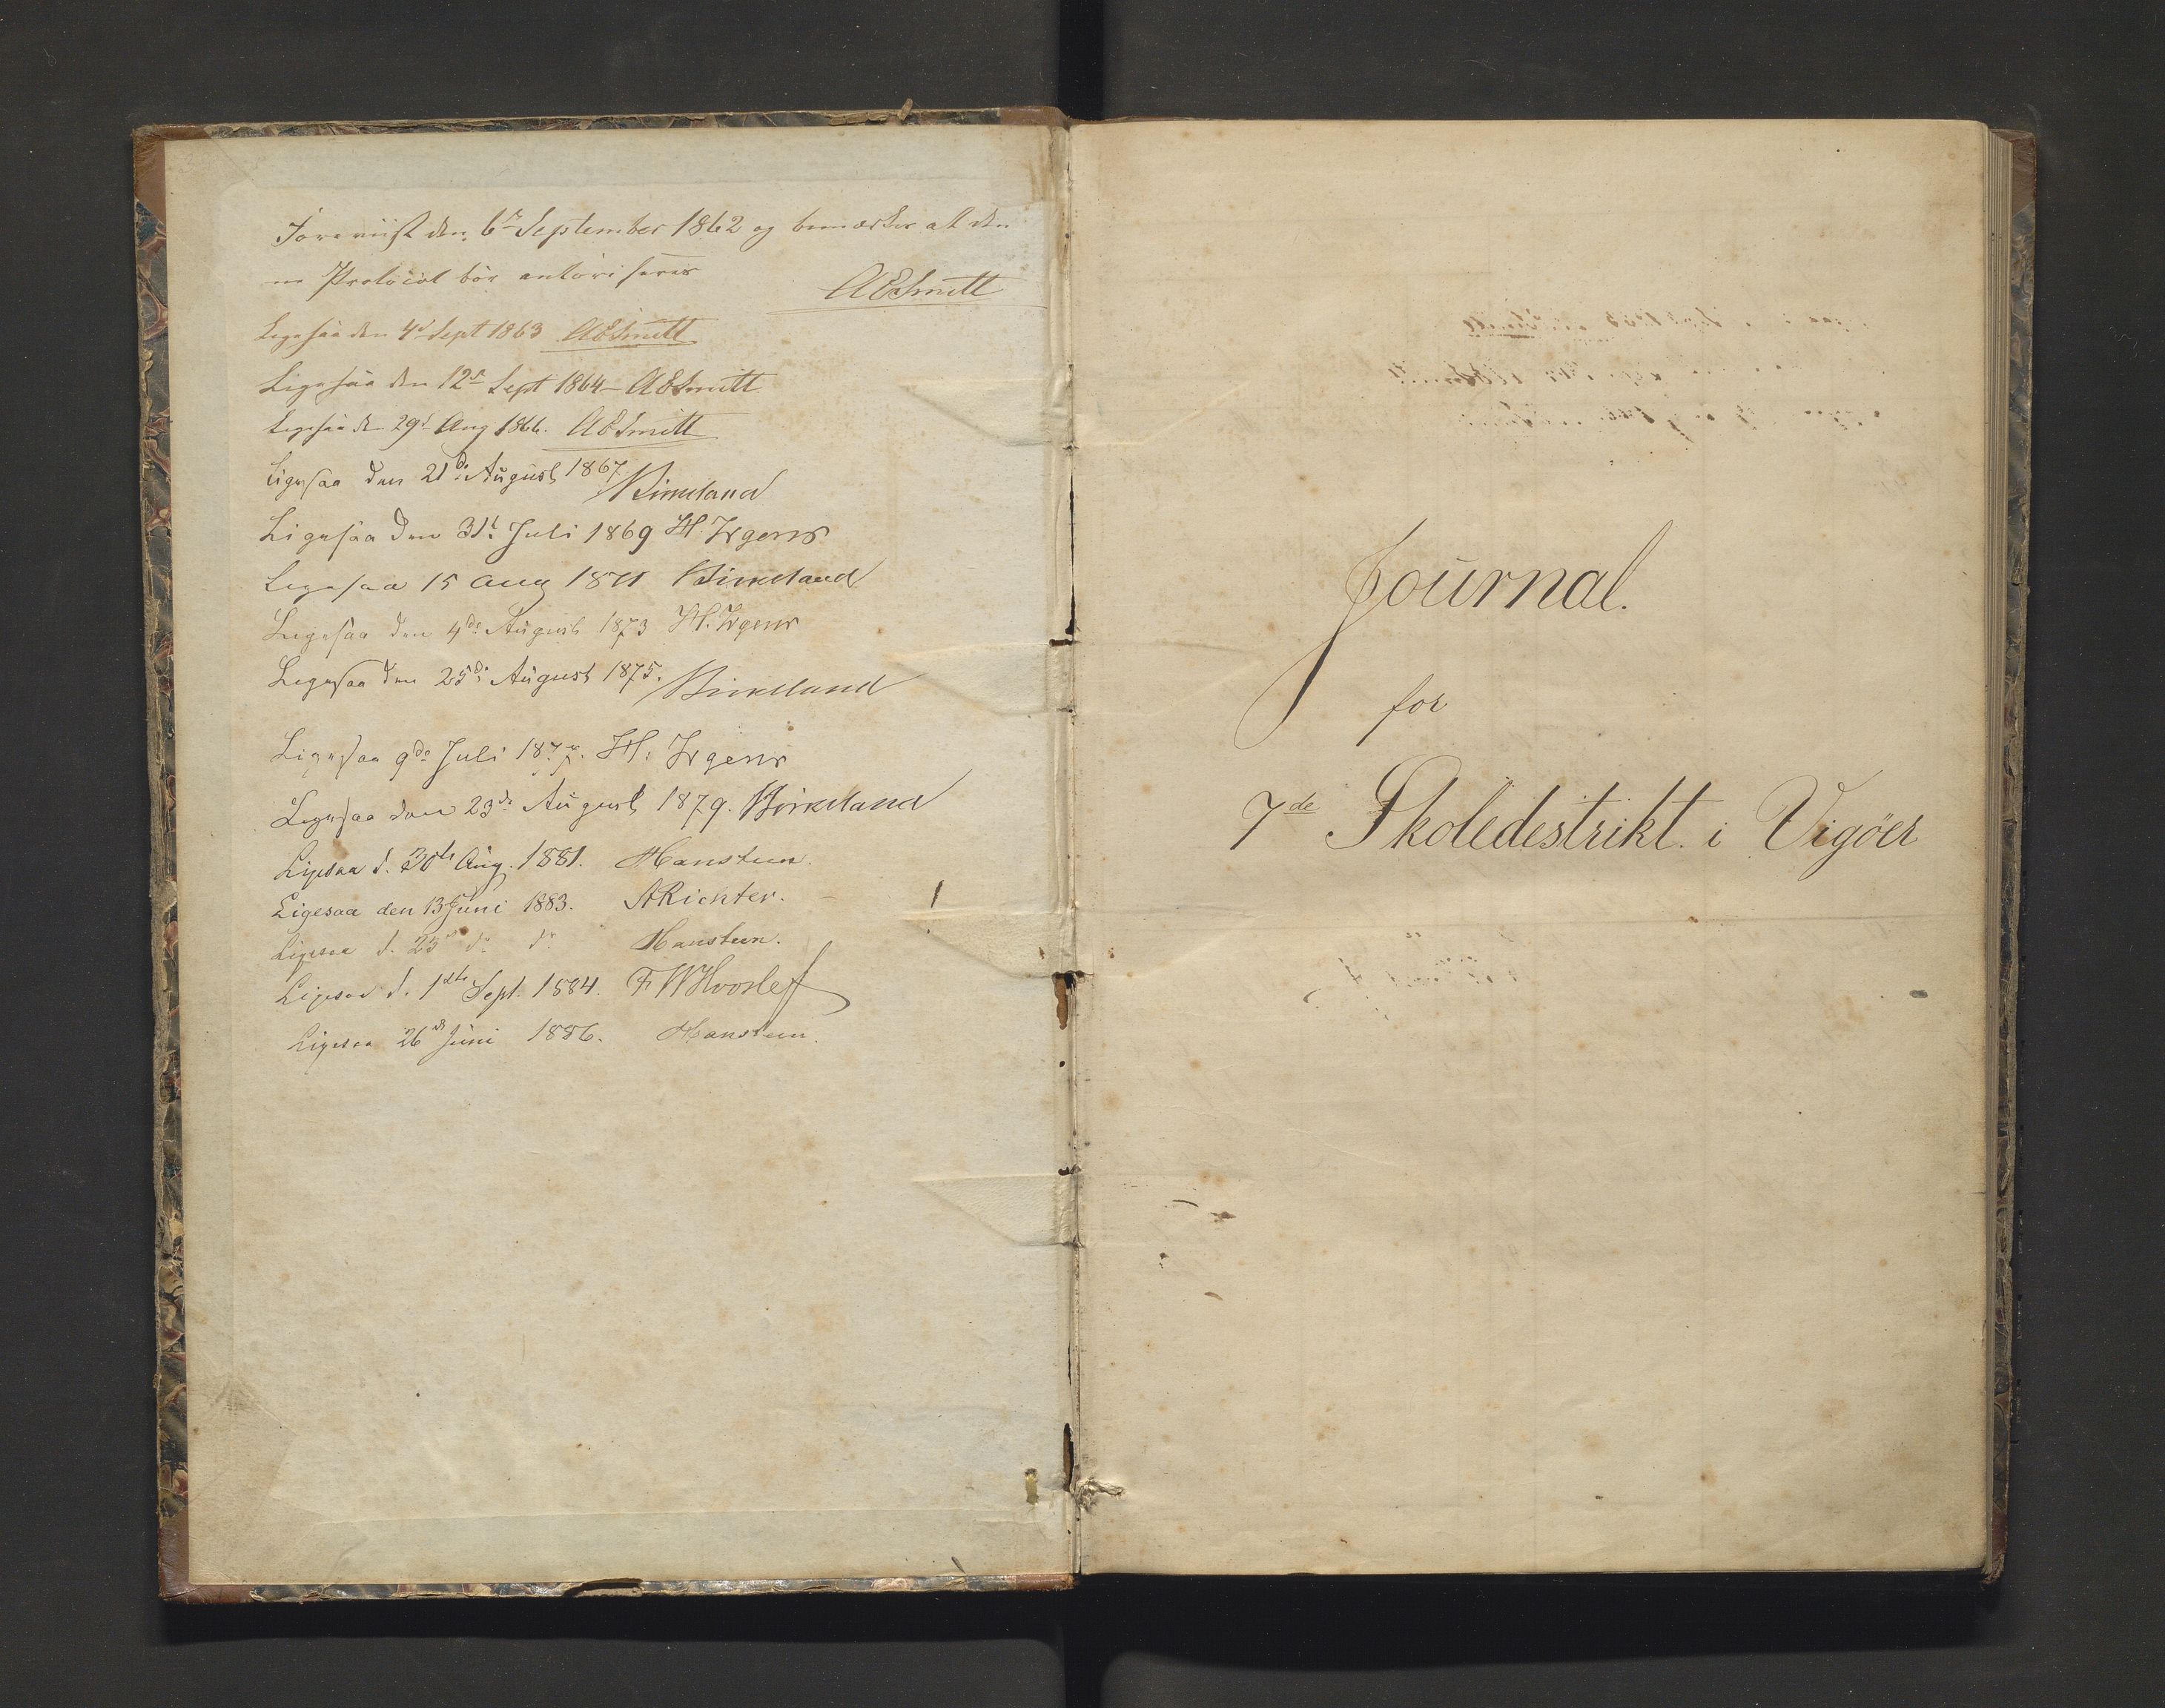 Foreviist den 6te September 1862 og bemærkes at den
ne Protocol bör autoriseres
AESmitt
Ligesaa den 4de Sept 1863 AESmitt
Ligesaa den 12te Sept 1864 – AESmitt
Ligesaa den 29de Aug 1866. AESmitt
Ligesaa den 21de August 1867. Birkeland
Ligesaa den 31te Juli 1869 H. Irgens
Ligesaa 15 Aug 1871 Birkeland
Ligesaa den 4de August 1873 H. Irgens
Ligesaa den 25de August 1875. Birkeland
Ligesaa 9de Juli 1877. H. Irgens
Ligesaa den 23de August 1879. Birkeland
Ligesaa d. 30te Aug. 1881. Hansteen.
Ligesaa den 13 Juni 1883. ARichter.
Ligesaa d. 25de do do Hansteen.
Ligesaa d. 1ste Sept. 1884. FWHvoslef
Ligesaa 26de Juni 1886. Hansteen.
Journal.
for
7de Skoledestrikt. i Vigöer